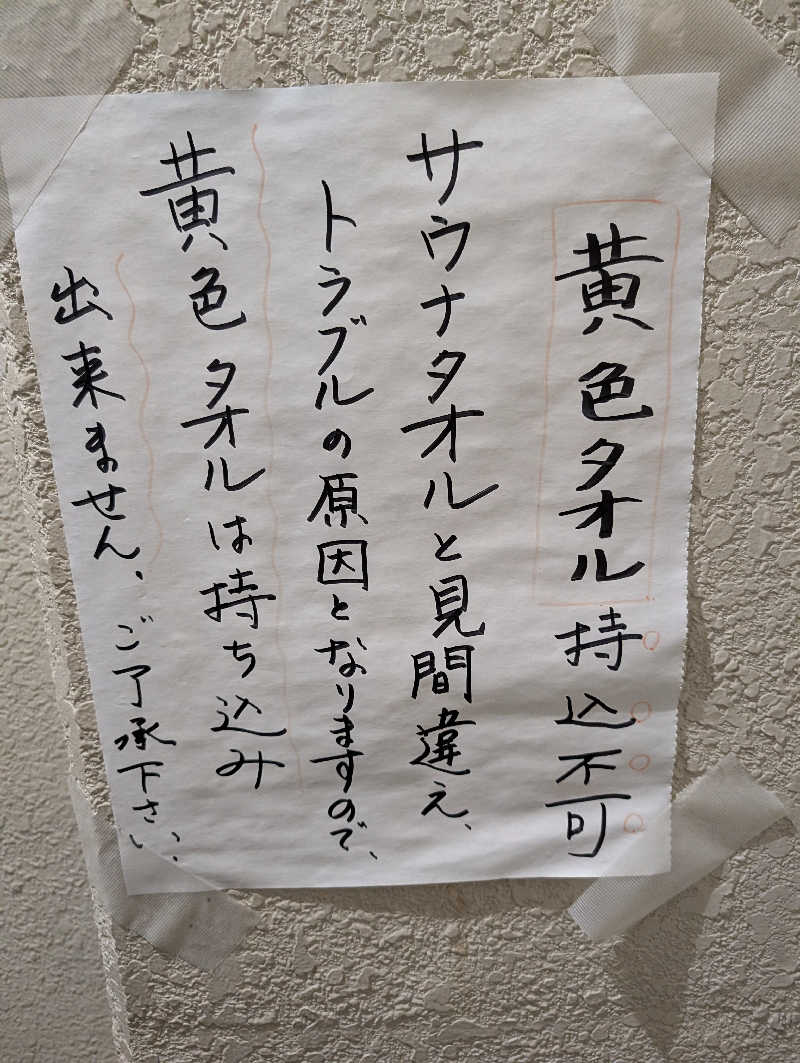 黄色タオル持込不可
サウナタオルと見間違え、
トラブルの原因となりますので、
黄色タオルは持ち込み
出来ません、ご了承下さい、